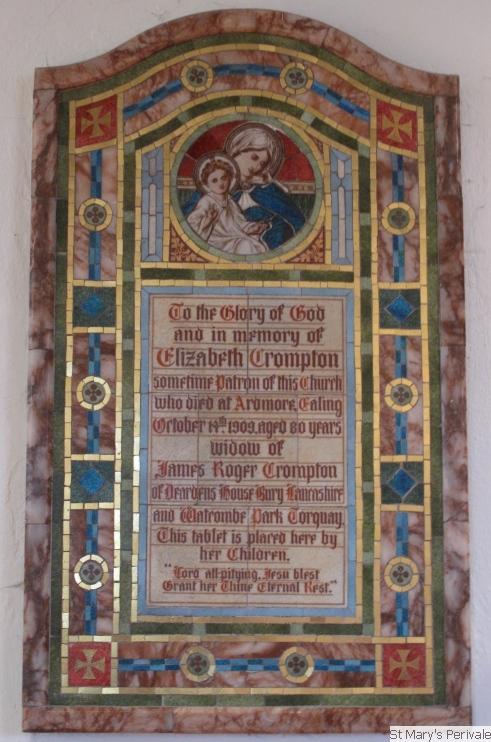 To the Glory of God
and in memory of
Elizabeth Crompton
sometime Patron of this Church
who died at Ardmore, Ealing
October 14th 1909, aged 80 years
widow of
James Roger Crompton
of Deardens House Bury Lancashire
and Watcombe Park Torquay.
This tablet is placed here by
her Children.
"Lord all-pitying, Jesu blest
Grant her Thine Eternal Rest."
St Mary's Perivale